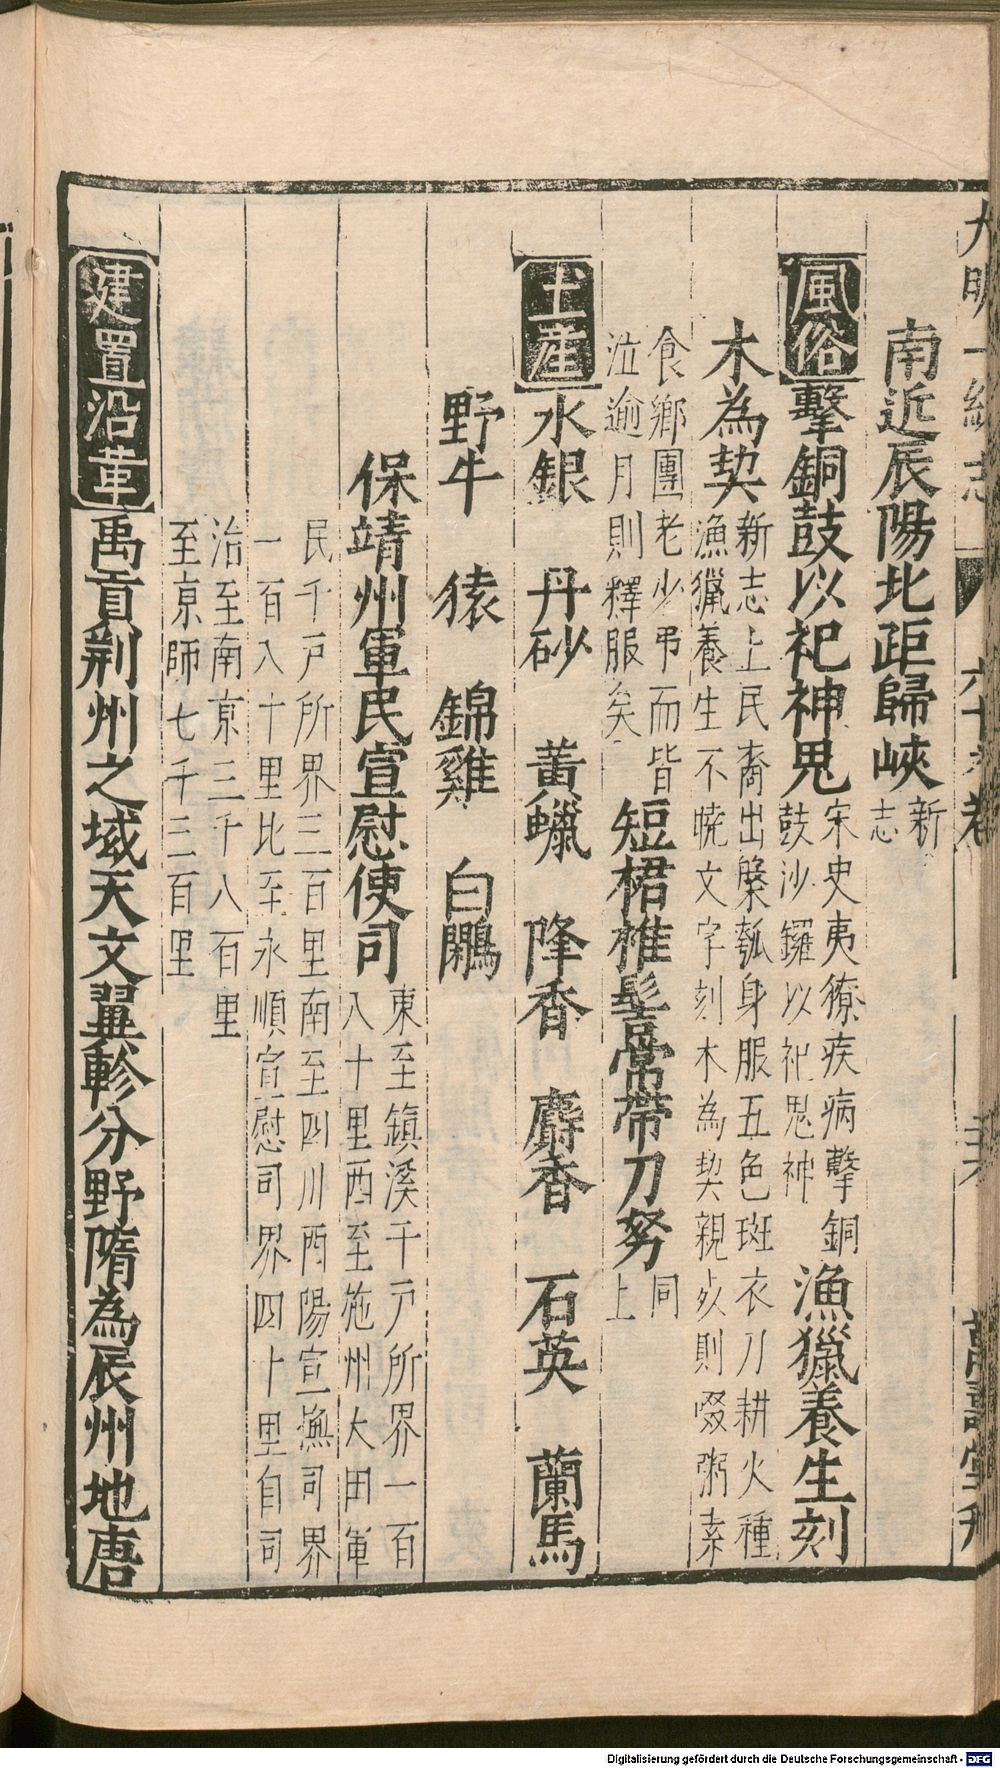 大明一統志 卷 萬壽堂刊
南近辰陽北距歸峽新
志
風俗擊銅鼓以祀神鬼宋史夷獠疾病擊銅
鼓沙鑼以祀鬼神漁獵養生刻
木為契新志土民裔出槃瓠身服五色斑衣刀耕火種
漁獵養生不曉文字刻木為契親歿則啜粥素
食鄉團老少弔而皆
泣逾月則釋服矣短裙椎髻常帶刀弩同
上
土產水銀 丹砂 黃蠟 降香 麝香 石英 蘭馬
野牛 猿 錦雞 白鷴
保靖州軍民宣慰使司東至鎮溪千戶所界一百
八十里西至施州大田軍
民千戶所界三百里南至四川酉陽宣撫司界
一百八十里北至永順宣慰司界四十里自司
治至南京三千八百里
至京師七千三百里
建置沿革禹貢荆州之域天文翼軫分野隋為辰州地唐
Digitalisierung gefördert durch die Deutsche Forschungsgemeinschaft - DFG